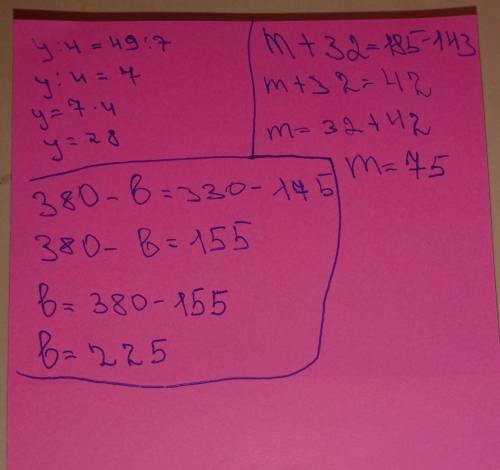 y:4=49:7
y:4=7
y=7·4
y=28
m+32=185-143
m+32=42
m=32+42
m=75
380-b=330-175
380-b=155
b=380-155
b=225